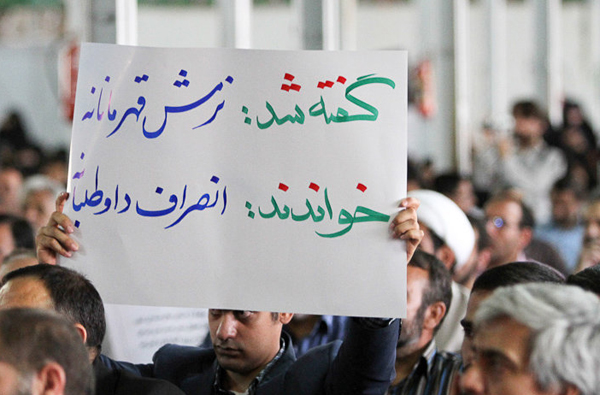 گفته شد: نرمش قهرمانانه
خواندند: انصراف داوطلبانه